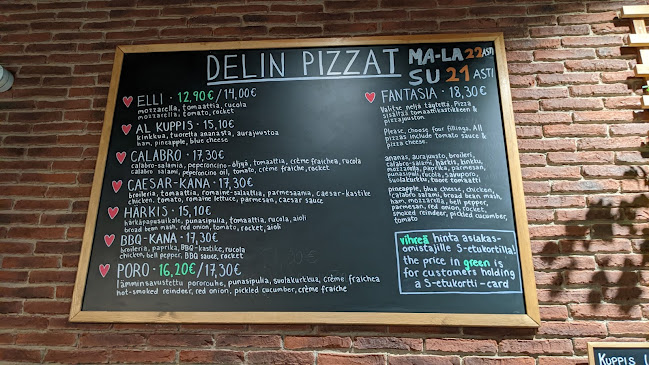 DELIN PIZZAT
MA-LA 22 ASTI
SU 21 ASTI
ELLI · 12,90€/14,00€
mozzarella, tomaattia, rucola
mozzarella, tomato, rocket
AL KUPPIS · 15,10€
kinkkua, tuoretta ananasta, aurajuustoa
ham, pineapple, blue cheese
CALABRO · 17,30€
calabro-salamia, peperoncino-öljyä, tomaattia, crème fraichea, rucola
calabro salami, peperoncini oil, tomato, crème fraiche, rocket
CAESAR-KANA · 17,30€
broileria, tomaattia, romaine-salaattia, parmesaania, caesar-kastike
chicken, tomato, romaine lettuce, parmesan, caesar sauce
HÄRKIS · 15,10€
härkäpapusuikale, punasipulia, tomaattia, rucola, aioli
broad bean mash, red onion, tomato, rocket, aioli
BBQ-KANA · 17,30€
broileria, paprika, BBQ-kastike, rucola
chicken, bell pepper, BBQ sauce, rocket
PORO · 16,20€/17,30€
lämminsavustettu pororouhe, punasipulia, suolakurkkua, crème fraichea
hot-smoked reindeer, red onion, pickled cucumber, crème fraiche
FANTASIA · 18,30€
Valitse neljä täytettä. Pizza
sisältää tomaattikastikkeen &
pizzajuuston.
Please, choose four fillings. All
pizzas include tomato sauce &
pizza cheese.
ananas, aurajuusto, broileri,
calabro-salami, härkis, kinkku,
mozzarella, paprika, parmesan,
punasipuli, rucola, savuporo,
suolakurkku, tuore tomaatti
pineapple, blue cheese, chicken,
calabro salami, broad bean mash,
ham, mozzarella, bell pepper,
parmesan, red onion, rocket,
smoked reindeer, pickled cucumber,
tomato
vihreä hinta asiakas-
omistajille S-etukortilla!
the price in green is
for customers holding
a S-etukortti-card
KUPPIS